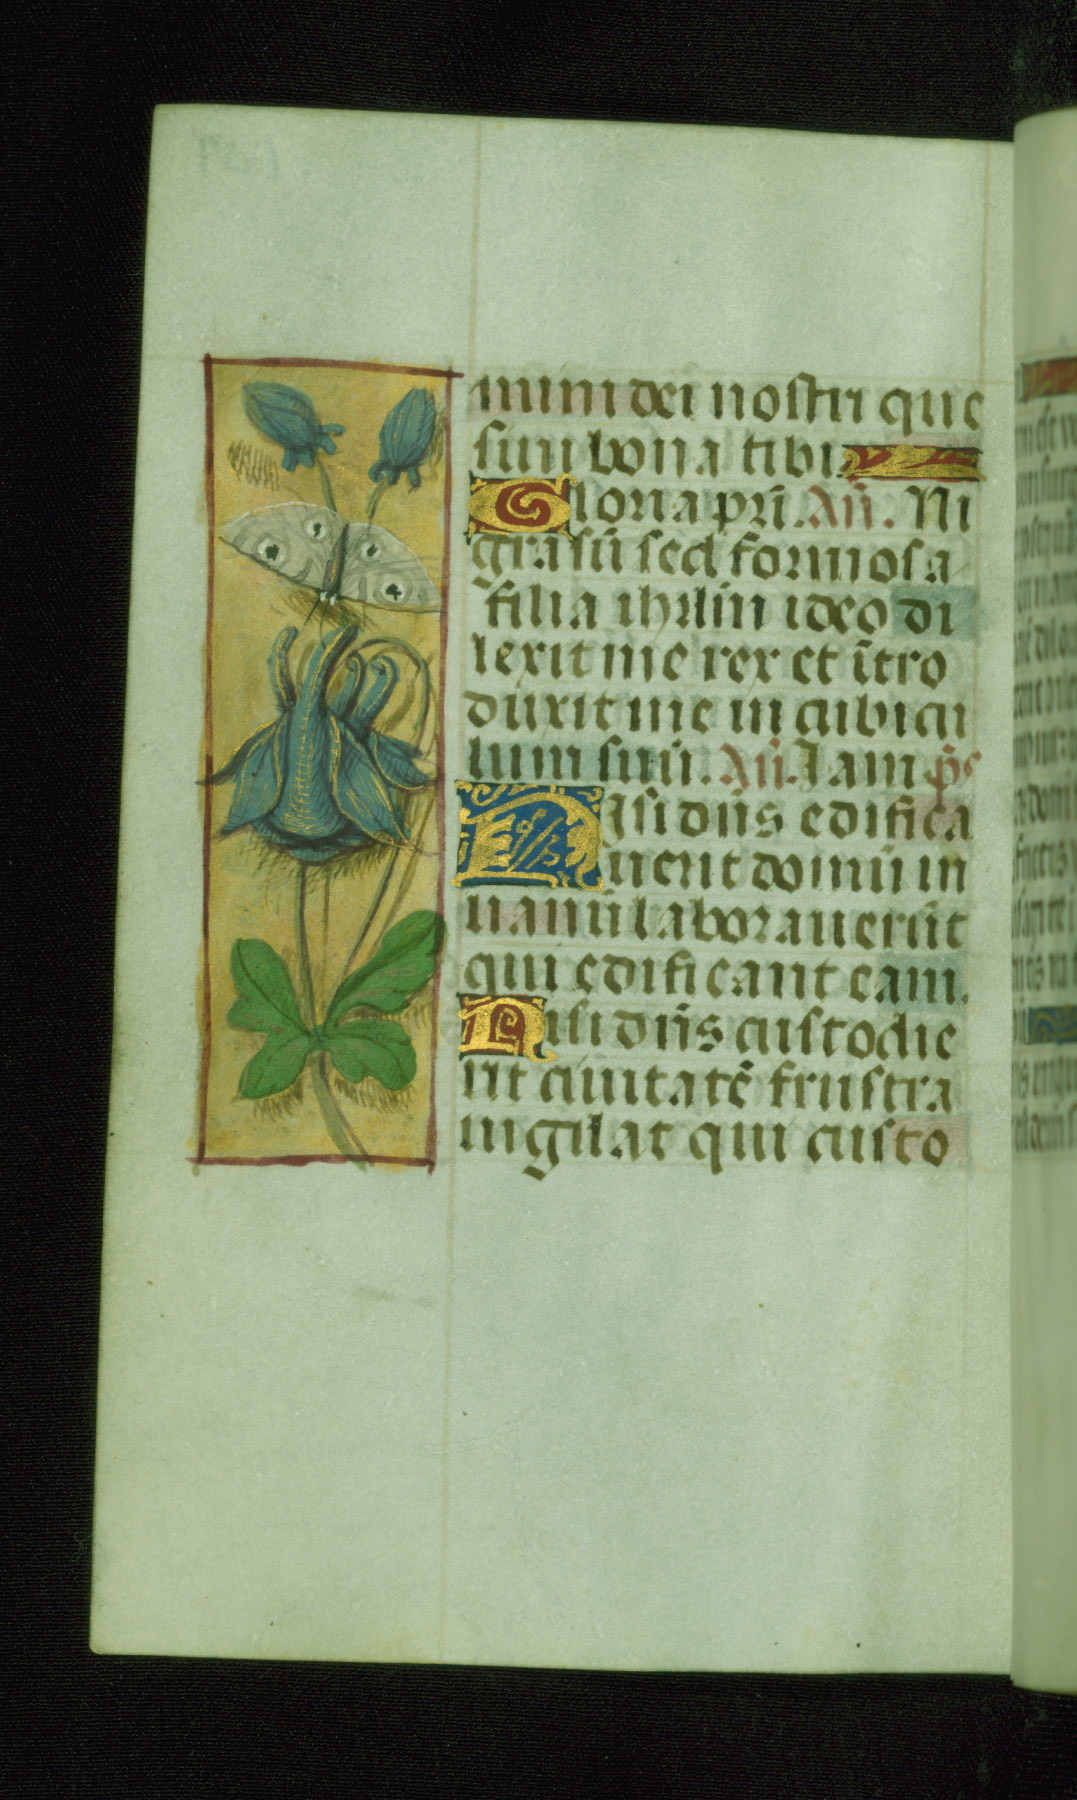 mini dei nostri que
siui bona tibi.
Gloria pr̄i. An̄. Ni
gra sū sed formosa
filia ihrlm̄ ideo di
lexit me rex et ītro
duxit me in cubicu
lum suū. An̄. Iam p̄s
Nisi dn̄s edifica
uerit domū in
uanū laborauerūt
qui edificant eam.
Nisi dn̄s custodie
rit ciuitatē frustra
uigilat qui custo